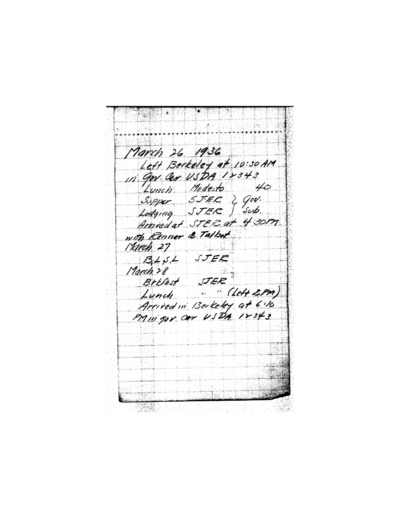 March 26 1936
Left Berkeley at 10:30 AM
in Gov. Car USDA 1x343
Lunch Modesto 40
Supper SJER } Gov.
Lodging SJER } Sub.
Arrived at SJER at 4:30 PM.
with Renner & Talbot
March 27
B, L & L SJER
March 28
Brkfast SJER
Lunch " " (Left 2 PM)
Arrived in Berkeley at 6:10
PM in gov. car USDA 1x343